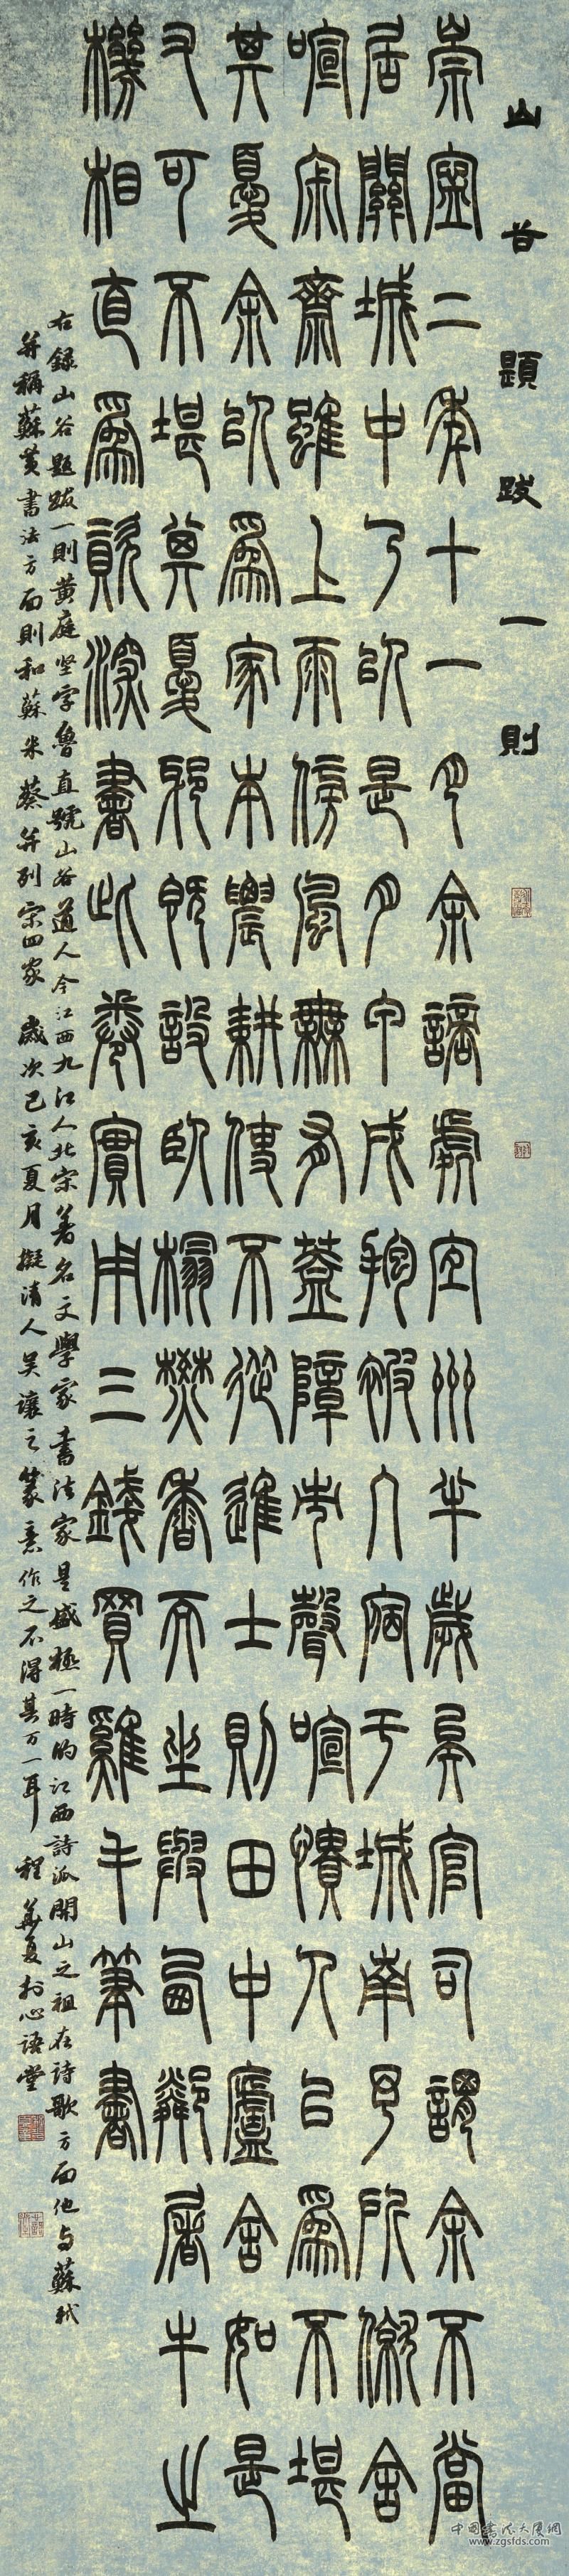 山谷題跋一則
崇寧二年十一月余謫處宜州半歲矣官司謂余不當
居關城中乃以是月甲戌抱被入宿于城南予所僦舍
喧寂齋雖上雨傍風無有蓋障市聲喧憒人以為不堪
其憂余以為家本農耕使不從進士則田中廬舍如是
又可不堪其憂邪既設臥榻焚香而坐與西鄰屠牛之
機相直為資深書此卷實用三錢買雞毛筆書
右錄山谷題跋一則黄庭坚字魯直號山谷道人今江西九江人北宋著名文學家書法家是盛極一時的江西詩派開山之祖在詩歌方面他与蘇軾
并稱蘇黄書法方面則和蘇米蔡并列宋四家 歲次己亥夏月擬清人吴讓之篆意作之不得其万一耳 程華夏於心語堂
中國書法大廈網
www.zgsfds.com